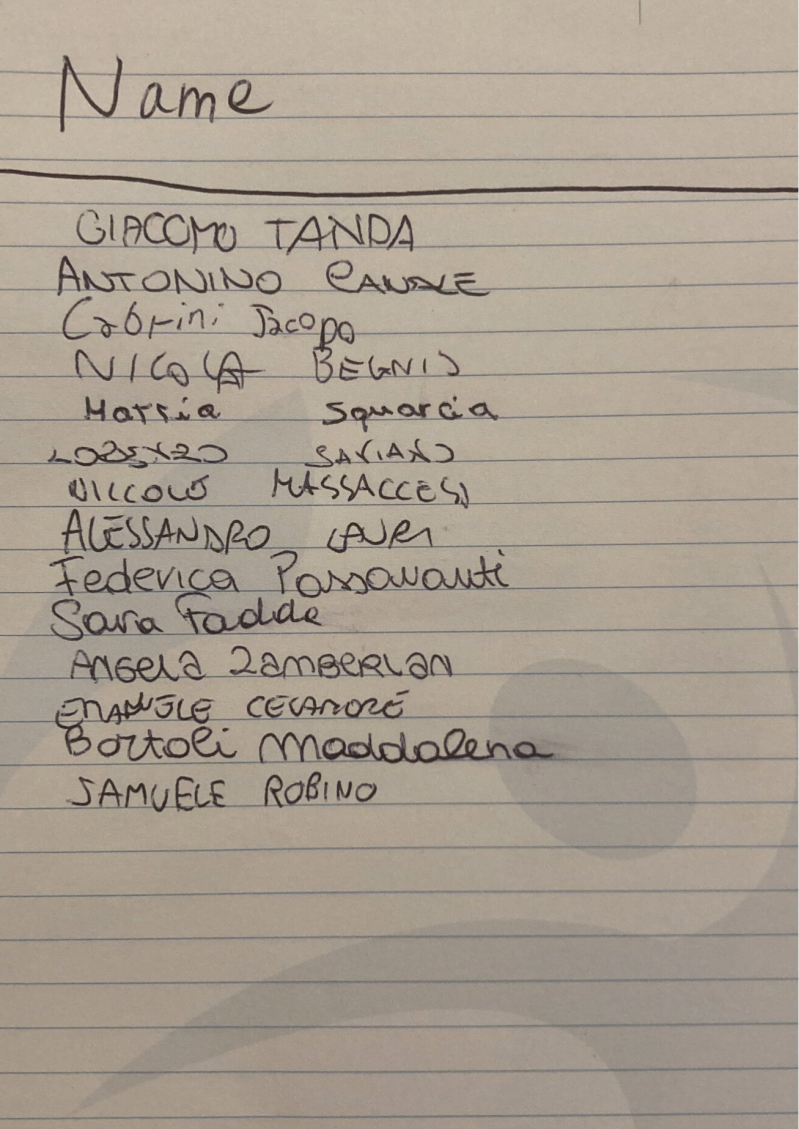 Name
GIACOMO TANDA
ANTONINO CANALE
Cabrini Jacopo
NICOLA BEGNIS
Mattia Squarcia
LORENZO SAVIANO
NICCOLÒ MASSACCESI
ALESSANDRO LAURI
Federica Passavanti
Sara Fadda
ANGELA ZAMBERLAN
EMANUELE
Bortoli Maddalena
SAMUELE ROBINO